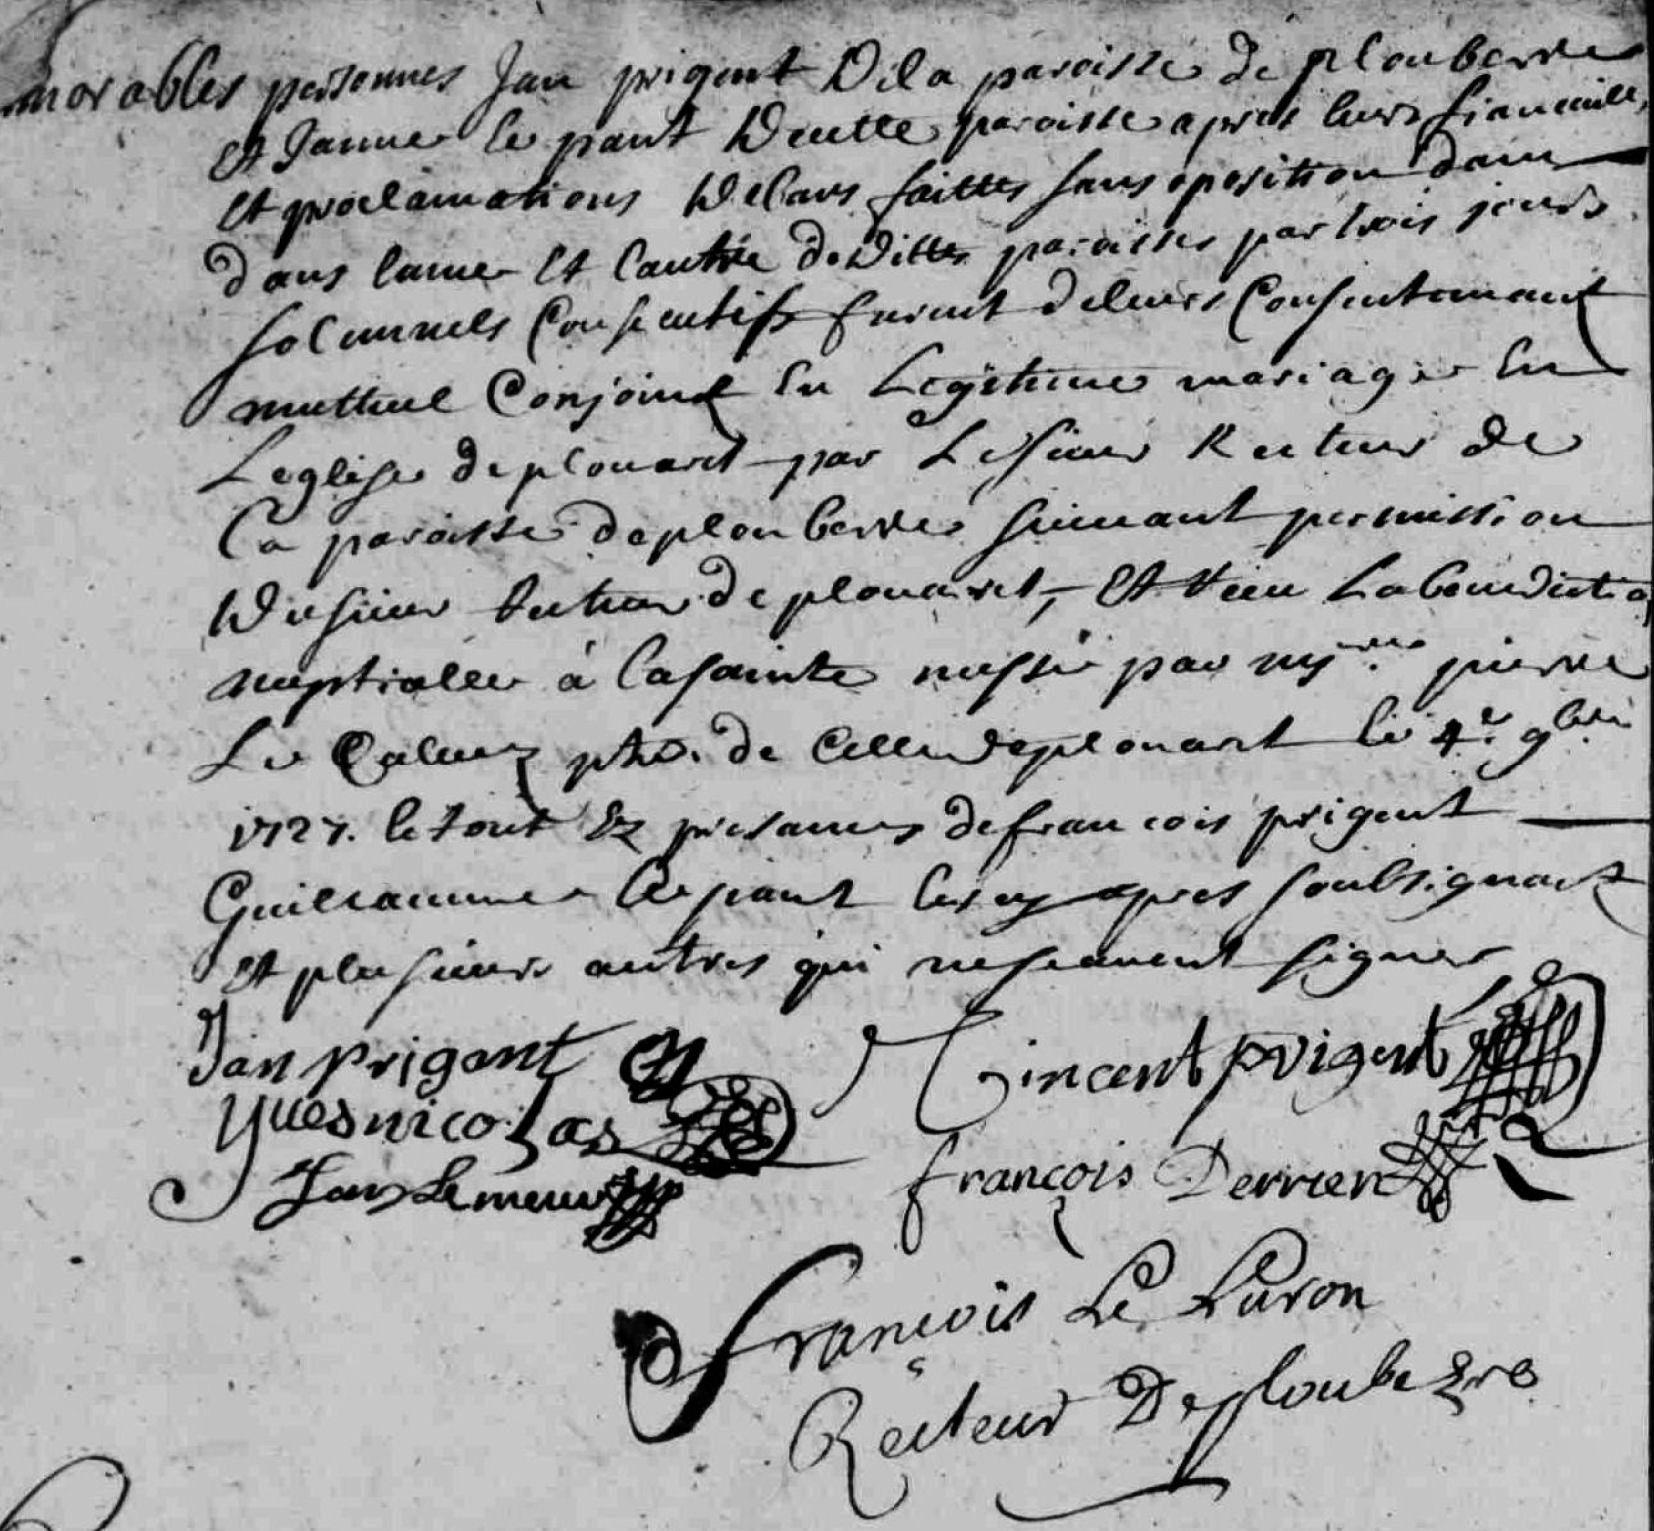 norables personnes Jan prigent De la paroisse de ploubezre
et Janne le pant De cette paroisse apres leurs fiancaille
et proclamations De bans faittes sans oposition dans
dans lune et lautre de Dittes paroisses par trois jours
solemnels Consecutifs furent de leurs Consentemant
muttuel Conjoint en Legitime mariage en
Leglise de plouaret par Le sieur Recteur de
la paroisse de ploubezre suivant permission
Du sieur recteur de plouaret, et veu La benediction
nuptialle a la sainte messe par mre pierre
Le Calvez ptre. de celle de plouaret le 4e. 9bre
1727. le tout ez presances de francois prigent
Guillaume le pant les cy apres soubsignant
et plusieurs autres qui ne scavent signer
Jan prigent
Vincent prigent
Yues nicolas
françois Derrien
Jan Le meur
françois Le Luron
Recteur De ploubezre